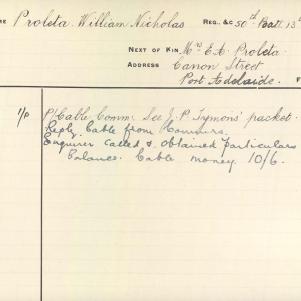 ME Proleta. William Nicholas REG. &C 50th Batt. 13th
NEXT OF KIN Mrs E. A. Proleta.
ADDRESS Canon Street
Port Adelaide. F
1/P P/Cable Comm. See J. P. Tymons' packet.
Reply Cable from Commrs.
Enquirer called & obtained particulars
Balance. Cable money. 10/6.